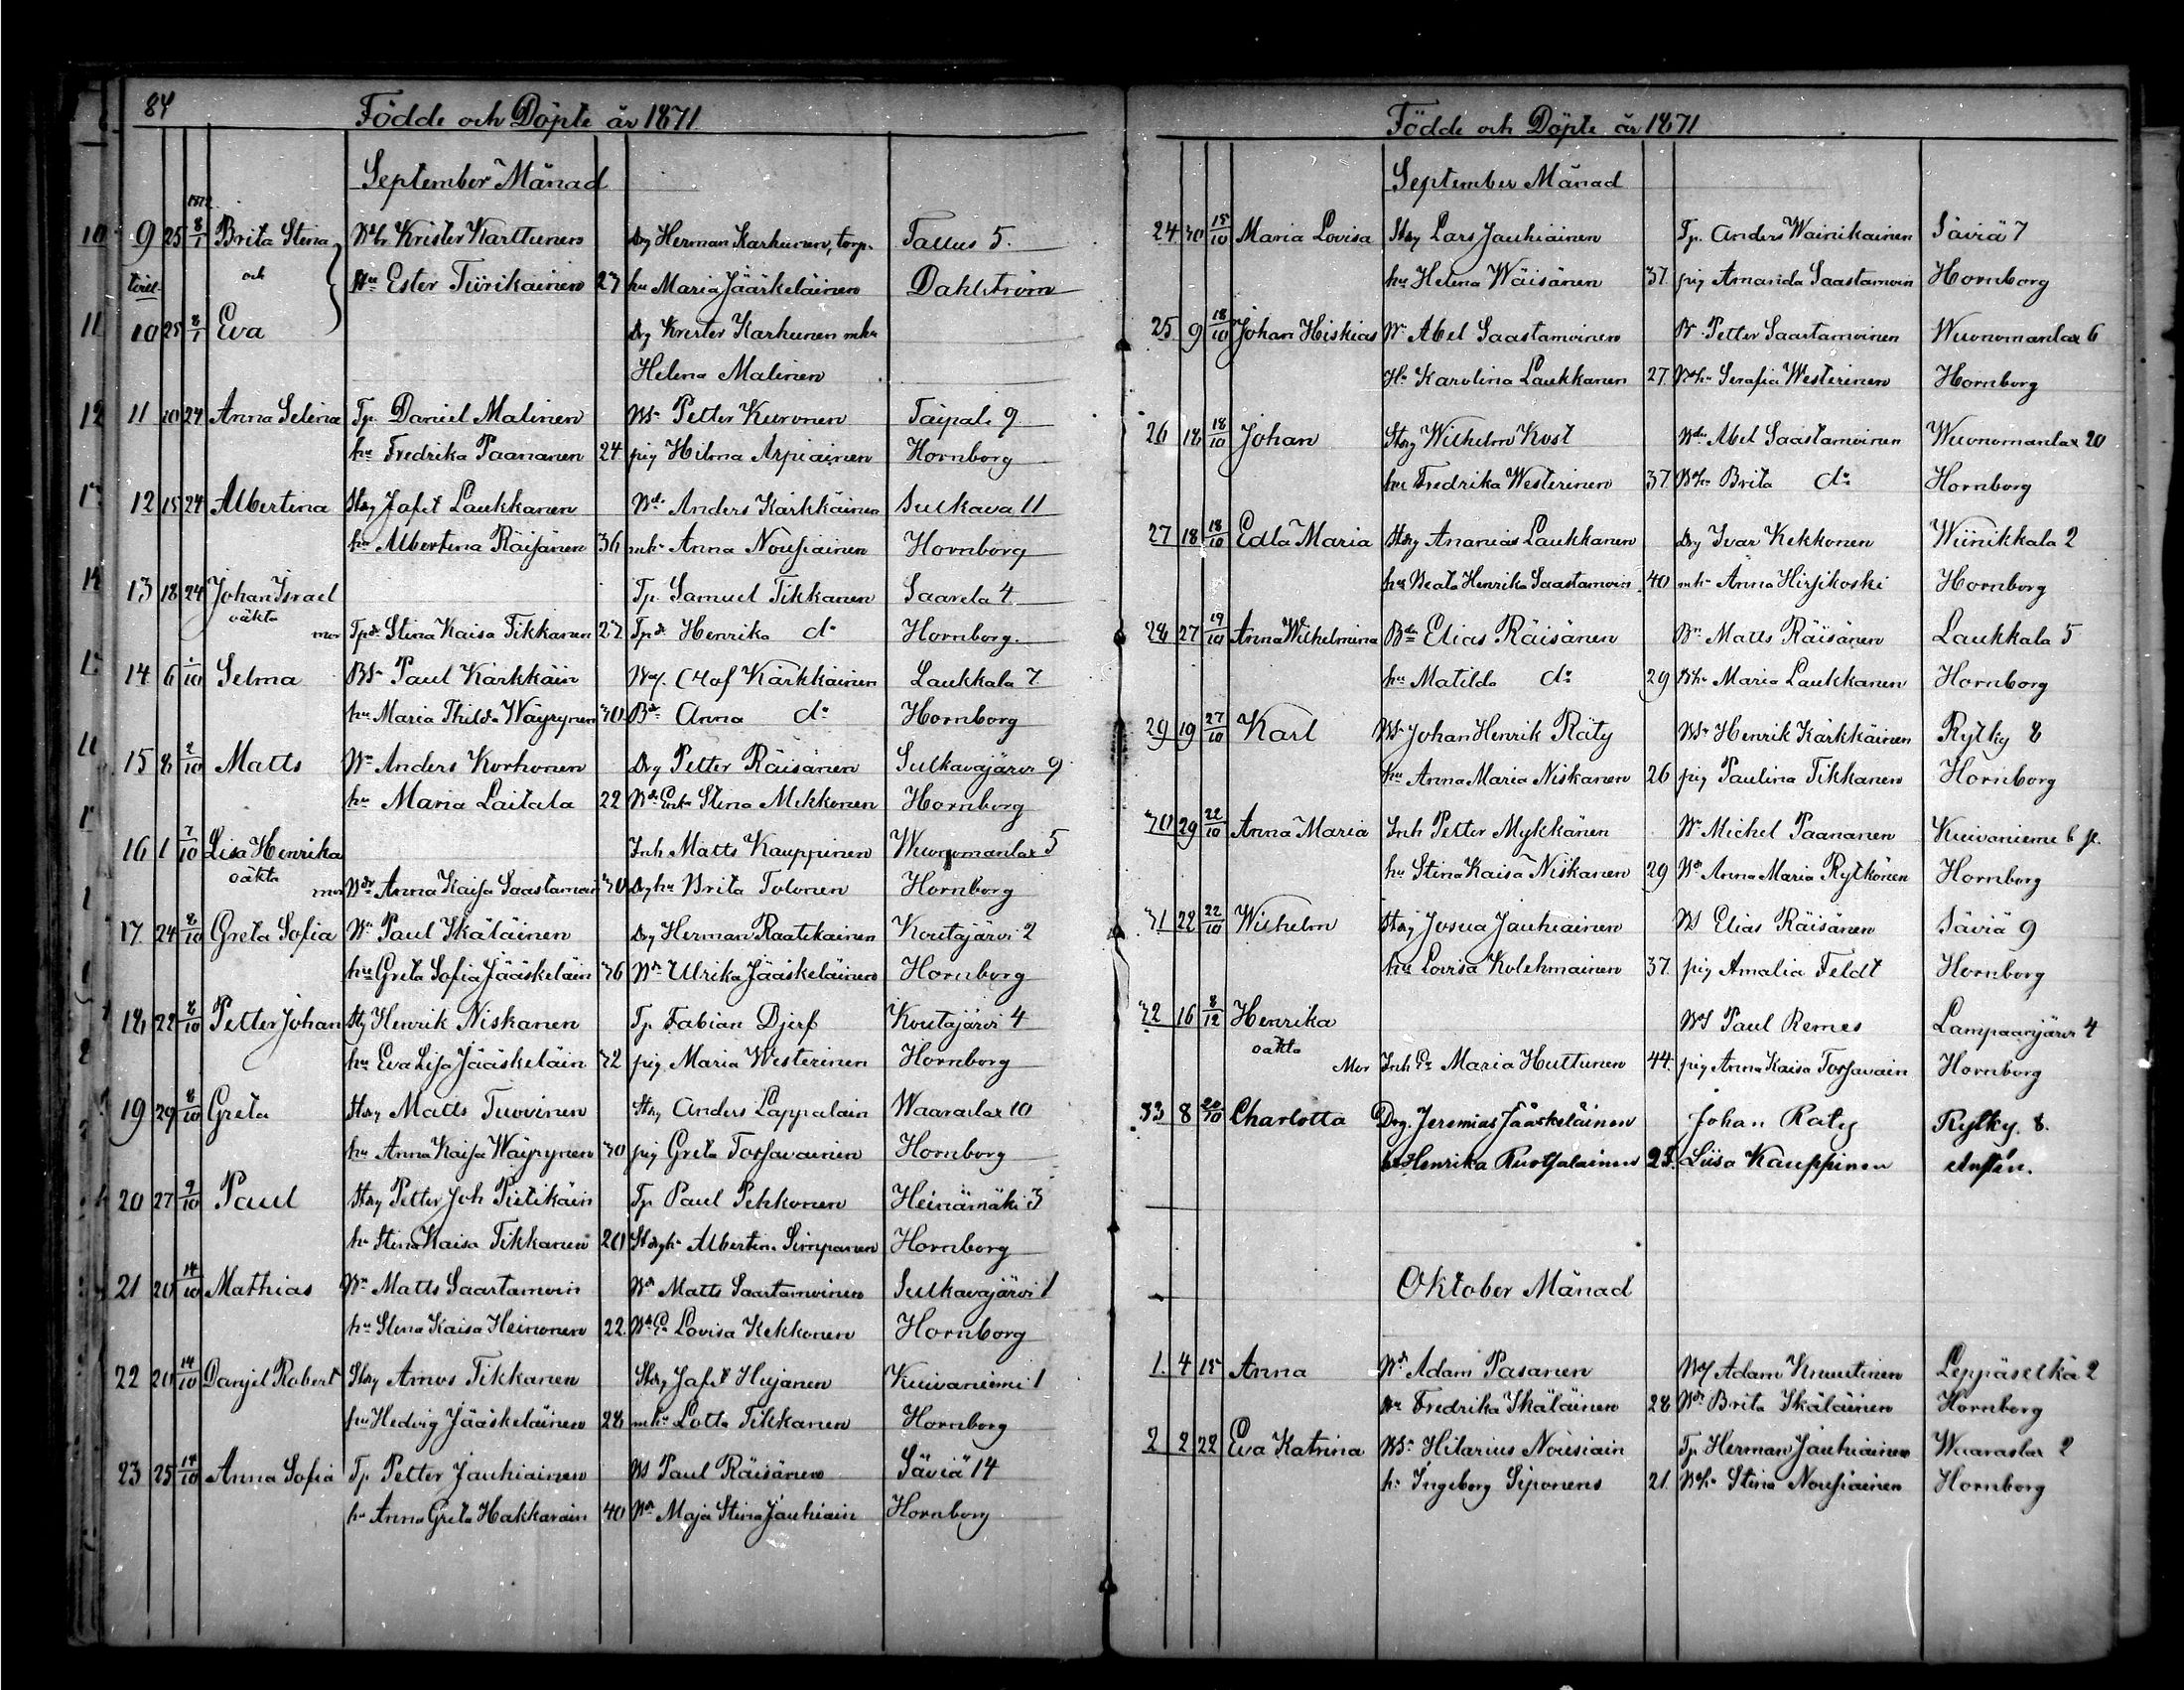 84
Födde och Döpte år 1871
September Månad
1872
10 9 25 8/1 Brita Stina Krister Karttunen Drg Herman Karhunen, torp. Tallus 5.
och hu Ester Tiirikainen 27 hu Maria Jääskeläinen Dahlström
11 10 25 8/1 Eva Drg Krister Karhunen mhu
Helena Malinen
12 11 10 24 Anna Selina Tp. Daniel Malinen Petter Kuronen Taipale 9
hu Fredrika Paananen 24 pig Hilma Arpiainen Hornborg
13 12 15 24 Albertina Stdrg Jafet Laukkanen Anders Kärkkäinen Sulkava 11
hu Albertina Räisänen 36 mhu Anna Nousiainen Hornborg
14 13 18 24 Johan Israel Tp. Samuel Tikkanen Saarela 4
oäkta mor Tpdr Stina Kaisa Tikkanen 27 Tpdr Henrika do Hornborg.
14 6 1/10 Selma Paul Kärkkäin Olof Kärkkäinen Laukkala 7
hu Maria Thilda Wäyrynen 30 Anna do Hornborg
15 8 2/10 Matts Anders Korhonen Drg Petter Räisänen Sulkavajärvi 9
hu Maria Laitala 22 Enk Stina Mekkonen Hornborg
16 1 7/10 Lisa Henrika Inh Matts Kauppinen Wuonomanlax 5
oäkta mor Anna Kaisa Saastamoin 30 Drghu Brita Tolonen Hornborg
17. 24 8/10 Greta Sofia Paul Skäläinen Drg Herman Raatikainen Koutajärvi 2
hu Greta Sofia Jääskeläin 36 Ulrika Jääskeläinen Hornborg
18 22 8/10 Petter Johan Henrik Niskanen Tp. Fabian Djerf Koutajärvi 4
hu Eva Lisa Jääskeläin 32 pig Maria Westerinen Hornborg
19 29 8/10 Greta Stdrg Matts Tuovinen Stdrg Anders Lappalain Waaraslax 10
hu Anna Kaisa Wäyrynen 30 pig Greta Torsavainen Hornborg
20 27 9/10 Paul Stdrg Petter Joh Pietikäin Tp. Paul Pekkonen Heinämäki 3
hu Stina Kaisa Tikkanen 20 Stdrghu Albertina Simpanen Hornborg
21 20 14/10 Mathias Matts Saastamoin Matts Saastamoinen Sulkavajärvi 1
hu Stina Kaisa Heinonen 22. Lovisa Kekkonen Hornborg
22 20 14/10 Danjel Robert Stdrg Amos Tikkanen Stdrg Jafet Hujanen Kuivaniemi 1
hu Hedvig Jääskeläinen 28 mhu Lotta Tikkanen Hornborg
23 25 14/10 Anna Sofia Tp. Petter Jauhiainen Paul Räisänen Säviä 14
hu Anna Greta Hakkarain 40 Maja Stina Jauhiain Hornborg
Födde och Döpte år 1871
September Månad
24 30 15/10 Maria Lovisa Stdrg Lars Jauhiainen Tp. Anders Wainikainen Säviä 7
hu Helena Wäisänen 37. pig Amanda Saastamoin Hornborg
25 9 18/10 Johan Hiskias Abel Saastamoinen Petter Saastamoinen Wuonomanlax 6
Hu Karolina Laukkanen 27. Serafia Westerinen Hornborg
26 18 18/10 Johan Stdrg Wilhelm Kost Abel Saastamoinen Wuonomanlax 20
hu Fredrika Westerinen 37. Brita do Hornborg
27 18 18/10 Edla Maria Stdrg Ananias Laukkanen Drg Ivar Kekkonen Wiinikkala 2
hu Beata Henrika Saastamoin 40 mhu Anna Hirsikoski Hornborg
28 27 19/10 Anna Wilhelmina Elias Räisänen Matts Räisänen Laukkala 5
hu Matilda do 29 Maria Laukkanen Hornborg
29 19 27/10 Karl Johan Henrik Räty Henrik Kärkkäinen Rytky 8
hu Anna Maria Niskanen 26 pig Paulina Tikkanen Hornborg
30 29 22/10 Anna Maria Inh Petter Mykkänen Michel Paananen Kuivaniemi
hu Stina Kaisa Niskanen 29 Anna Maria Rytkönen Hornborg
31 22 22/10 Wilhelm Stdrg Josua Jauhiainen Elias Räisänen Säviä 9
hu Lovisa Kolehmainen 37. pig Amalia Feldt Hornborg
32 16 8/12 Henrika Paul Remes Lampaanjärvi 4
oäkta Mor Inh Maria Huttunen 44. pig Anna Kaisa Torsavain Hornborg
33 8 20/10 Charlotta Drg. Jeremias Jääskeläinen Johan Raty Rytky. 8.
Henrika Ruotsalainen 25. Liisa Kauppinen
Oktober Månad
1. 4 15 Anna Adam Pasanen Adam Knuutinen Leppäselkä 2
hu Fredrika Skäläinen 28 Brita Skäläinen Hornborg
2 2 22 Eva Katrina Hilarius Nousiain Tp. Herman Jauhiainen Waaraslax 2
hu Ingeborg Siponen 21. Stina Nousiainen Hornborg